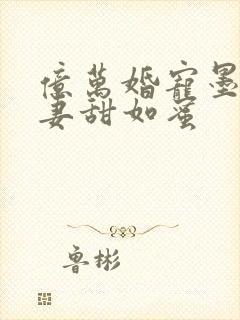 億萬婚寵墨
妻甜如蜜
魯彬